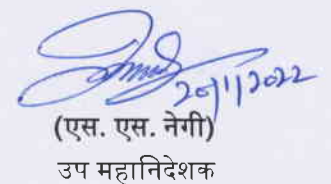 20/1/2022
(एस. एस. नेगी)
उप महानिदेशक